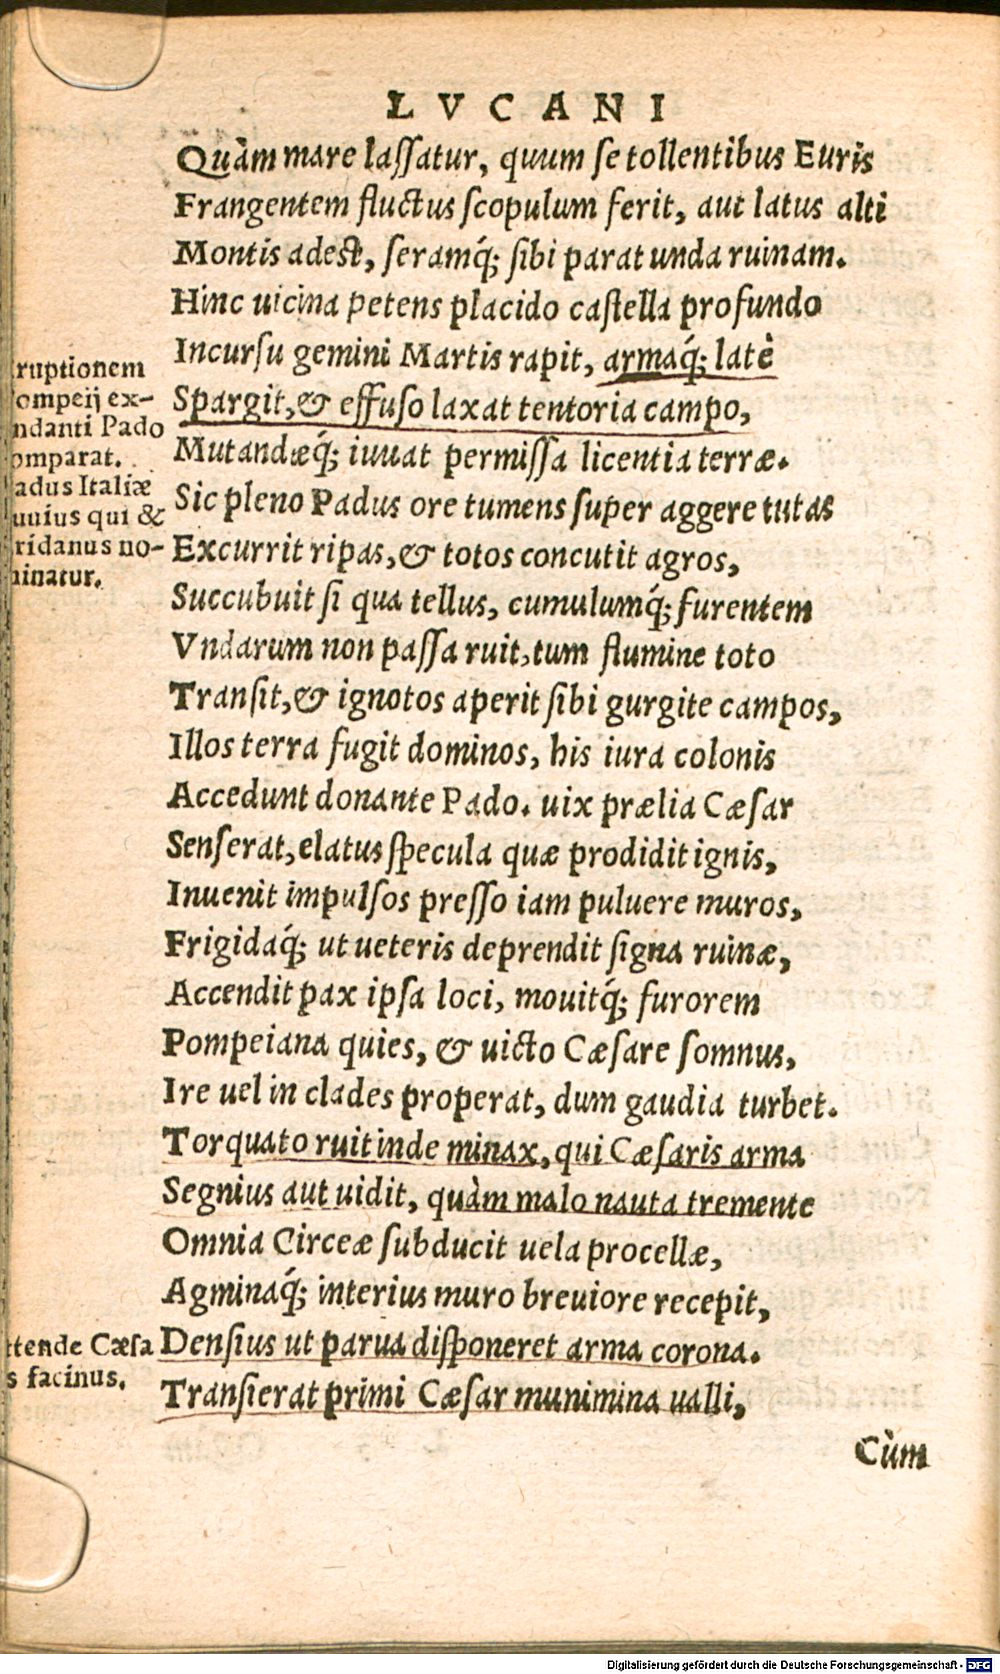 LVCANI
Quàm mare lassatur, quum se tollentibus Euris
Frangentem fluctus scopulum ferit, aut latus alti
Montis adest, seramq́; sibi parat unda ruinam.
Hinc uicina petens placido castella profundo
Incursu gemini Martis rapit, armaq́; latè
Spargit, & effuso laxat tentoria campo,
Mutandæq́; iuuat permissa licentia terræ.
Sic pleno Padus ore tumens super aggere tutas
Excurrit ripas, & totos concutit agros,
Succubuit si qua tellus, cumulumq́; furentem
Vndarum non passa ruit, tum flumine toto
Transit, & ignotos aperit sibi gurgite campos,
Illos terra fugit dominos, his iura colonis
Accedunt donante Pado. uix prælia Cæsar
Senserat, elatus specula quæ prodidit ignis,
Inuenit impulsos presso iam puluere muros,
Frigidaq́; ut ueteris deprendit signa ruinæ,
Accendit pax ipsa loci, mouitq́; furorem
Pompeiana quies, & uicto Cæsare somnus,
Ire uel in clades properat, dum gaudia turbet.
Torquato ruit inde minax, qui Cæsaris arma
Segnius aut uidit, quàm malo nauta tremente
Omnia Circeæ subducit uela procellæ,
Agminaq́; interius muro breuiore recepit,
Densius ut parua disponeret arma corona.
Transierat primi Cæsar munimina ualli,
Cùm
ruptionem
ompeij ex-
ndanti Pado
omparat.
adus Italiæ
uuius qui &
ridanus no-
inatur.
ttende Cæsa
s facinus.
Digitalisierung gefördert durch die Deutsche Forschungsgemeinschaft - DFG